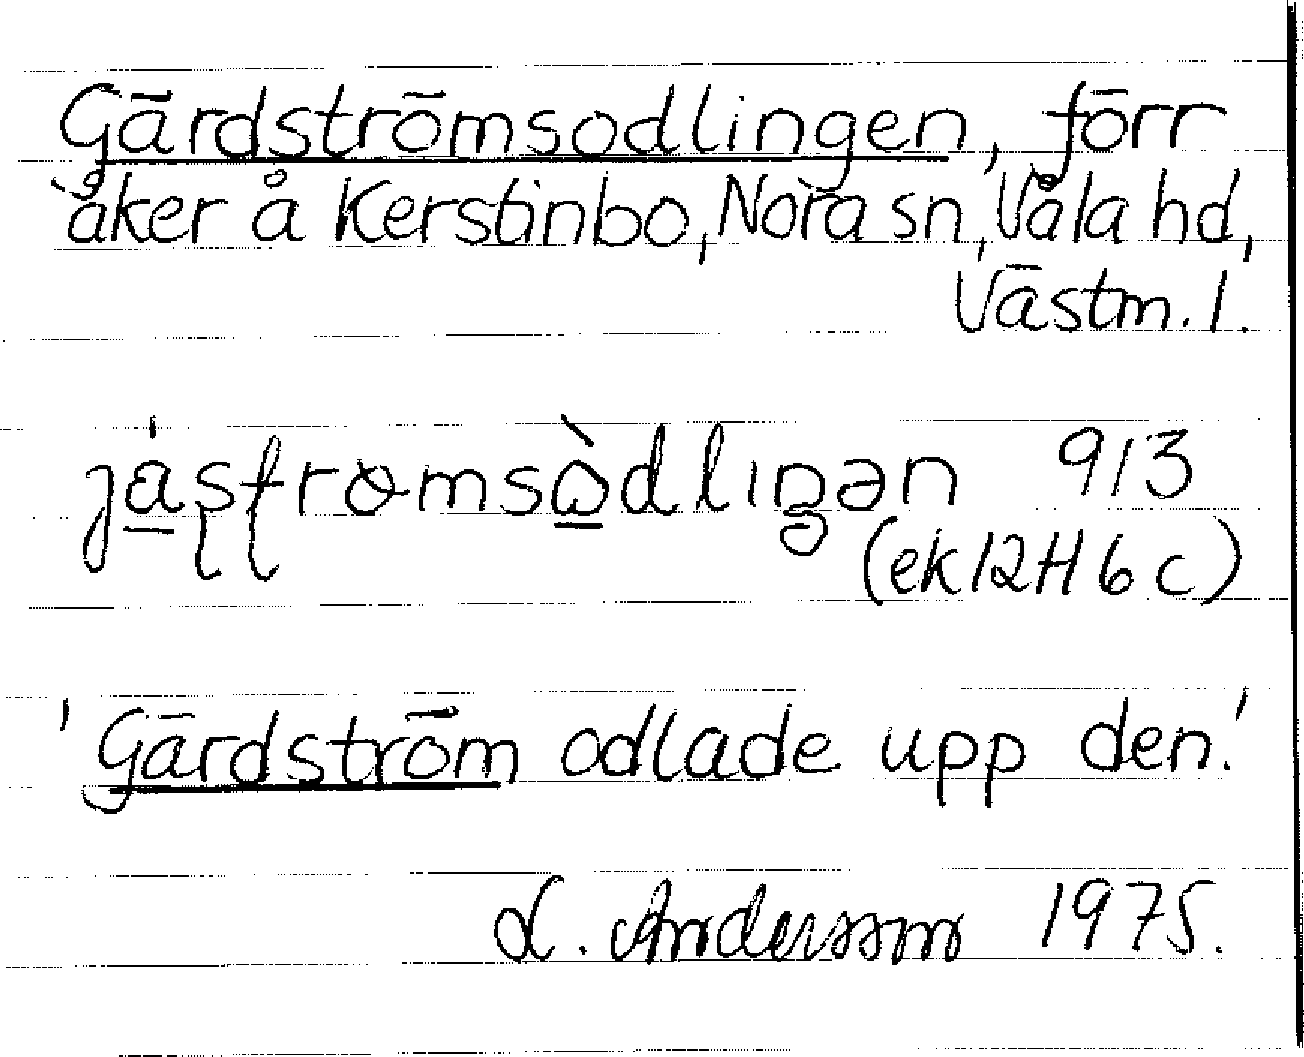 Gärdströmsodlingen, förr
åker å Kerstinbo, Nora sn, Våla hd,
Västm. l.
913
(ek 12H 6c)
'Gärdström odlade upp den.'
L. Andersson 1975.